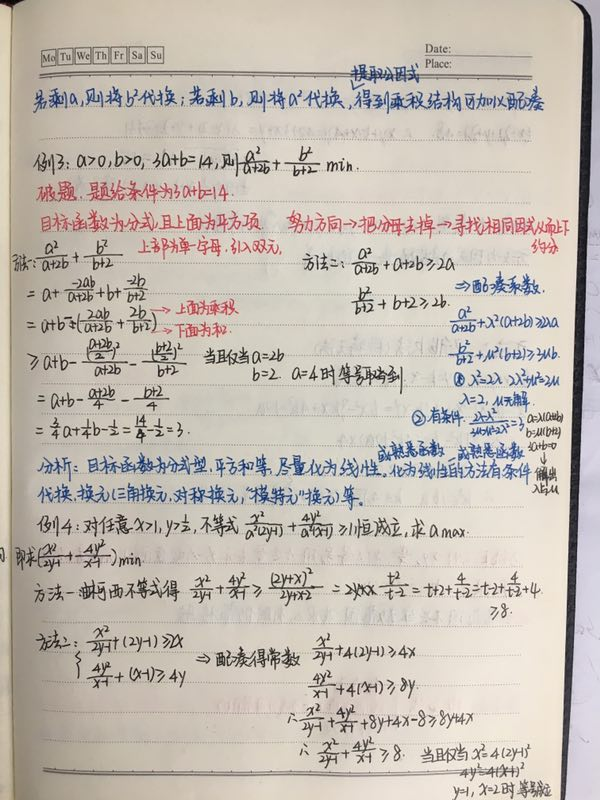 Mo Tu We Th Fr Sa Su
Date:
Place:
提取公因式
若乘a,则将b²代换;若乘b,则将a²代换,得到乘积结构可加以配凑
例3:a>0,b>0, 3a+b=14,则a²/(a+2b)+b²/(b+2) min.
破题.题给条件为3a+b=14
目标函数为分式,且上面为平方项 努力方向→把分母去掉→寻找相同因式从而上下约分
上部为单一字母,引入双元.
方法一:a²/(a+2b)+b²/(b+2)
=a+(-2ab)/(a+2b)+b+(-2b)/(b+2)
=a+b-(2ab/(a+2b)+2b/(b+2)) →上面为乘积
→下面为和.
≥a+b-((a+2b)/2)²/(a+2b)-((b+2)/2)²/(b+2) 当且仅当a=2b
b=2. a=4时等号取得到
=a+b-(a+2b)/4-(b+2)/4
=3/4a+1/4b-1/2=14/4-1/2=3.
方法二:a²/(a+2b)+a+2b≥2a
b²/(b+2)+b+2≥2b.
⇒配凑系数.
a²/(a+2b)+λ²(a+2b)≥2λa
b²/(b+2)+μ²(b+2)≥2μb.
λ=2,μ无解.
②有条件.
a=λ(a+2b)
b=μ(b+2)
解出
λ与μ
或熟悉函数 或熟悉函数
分析:目标函数为分式型,平方和等,尽量化为线性.化为线性的方法有条件
代换,换元(三角换元,对称换元,"模特元"换元)等.
例4:对任意x>1,y>1/2,不等式x²/(a²(2y-1))+4y²/(a²(x-1))≥1恒成立,求a max.
即求(x²/(2y-1)+4y²/(x-1))min
方法一:由柯西不等式得 x²/(2y-1)+4y²/(x-1)≥(2y+x)²/(2y+x-2) =2y+x=t t²/(t-2)=t+2+4/(t-2)=t-2+4/(t-2)+4.
≥8.
方法二:x²/(2y-1)+(2y-1)≥2x
4y²/(x-1)+(x-1)≥4y
⇒配凑得常数 x²/(2y-1)+4(2y-1)≥4x
4y²/(x-1)+4(x-1)≥8y
∴x²/(2y-1)+4y²/(x-1)+8y+4x-8≥8y+4x
∴x²/(2y-1)+4y²/(x-1)≥8. 当且仅当x²=4(2y-1)²
4y²=4(x-1)²
y=1,x=2时等号成立